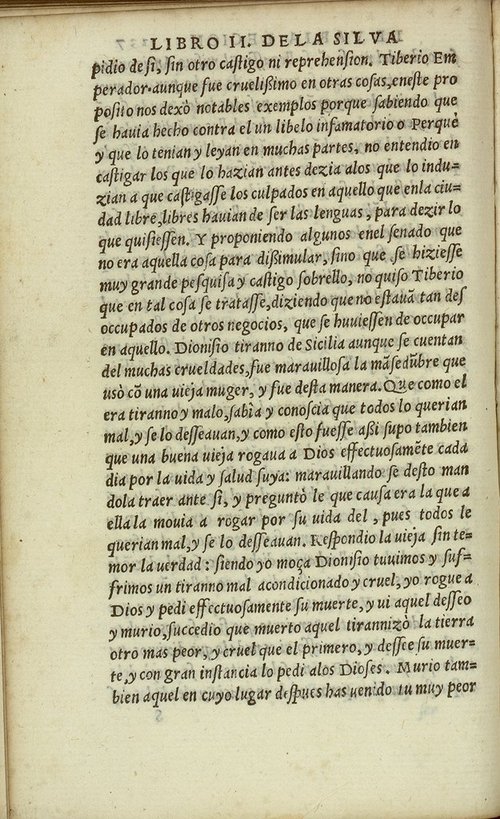 LIBRO II. DE LA SILVA
pidio de si, sin otro castigo ni reprehension. Tiberio Em
perador, aunque fue cruelissimo en otras cosas, eneste pro
posito nos dexò notables exemplos porque sabiendo que
se hauia hecho contra el un libelo infamatorio o Perquè
y que lo tenian y leyan en muchas partes, no entendio en
castigar los que lo hazian antes dezia alos que lo indu-
zian a que castigasse los culpados en aquello que enla ciu-
dad libre, libres hauian de ser las lenguas, para dezir lo
que quisiessen. Y proponiendo algunos enel senado que
no era aquella cosa para dissimular, sino que se hiziesse
muy grande pesquisa y castigo sobrello, no quiso Tiberio
que en tal cosa se tratasse, diziendo que no estauã tan des
occupados de otros negocios, que se huuiessen de occupar
en aquello. Dionisio tiranno de Sicilia aunque se cuentan
del muchas crueldades, fue marauillosa la mãsedũbre que
usò cõ una uieja muger, y fue desta manera. Que como el
era tiranno y malo, sabìa y conoscia que todos lo querian
mal, y se lo desseauan, y como esto fuesse assi supo tambien
que una buena uieja rogaua a Dios effectuosamẽte cada
dia por la uida y salud suya: marauillando se desto man
dola traer ante si, y preguntò le que causa era la que a
ella la mouia a rogar por su uida del, pues todos le
querian mal, y se lo desseauan. Respondio la uieja sin te-
mor la uerdad: siendo yo moça Dionisio tuuimos y suf-
frimos un tiranno mal acondicionado y cruel, yo rogue a
Dios y pedi effectuosamente su muerte, y ui aquel desseo
y murio, succedio que muerto aquel tirannizò la tierra
otro mas peor, y cruel que el primero, y dessee su muer-
te, y con gran instancia lo pedi alos Dioses. Murio tam-
bien aquel en cuyo lugar despues has uenido tu muy peor